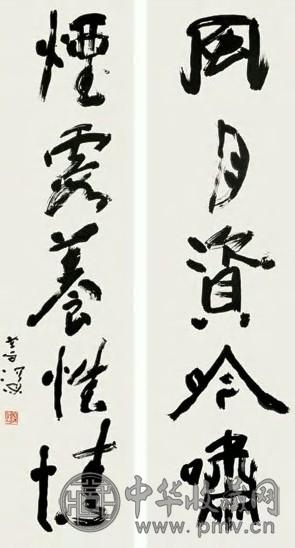 風月資吟嘯
煙霞養性情
中华收藏网
www.pmv.cn